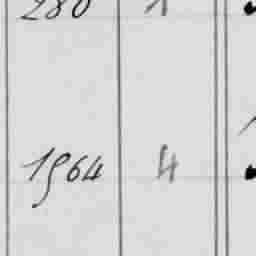 280 1
1564 4